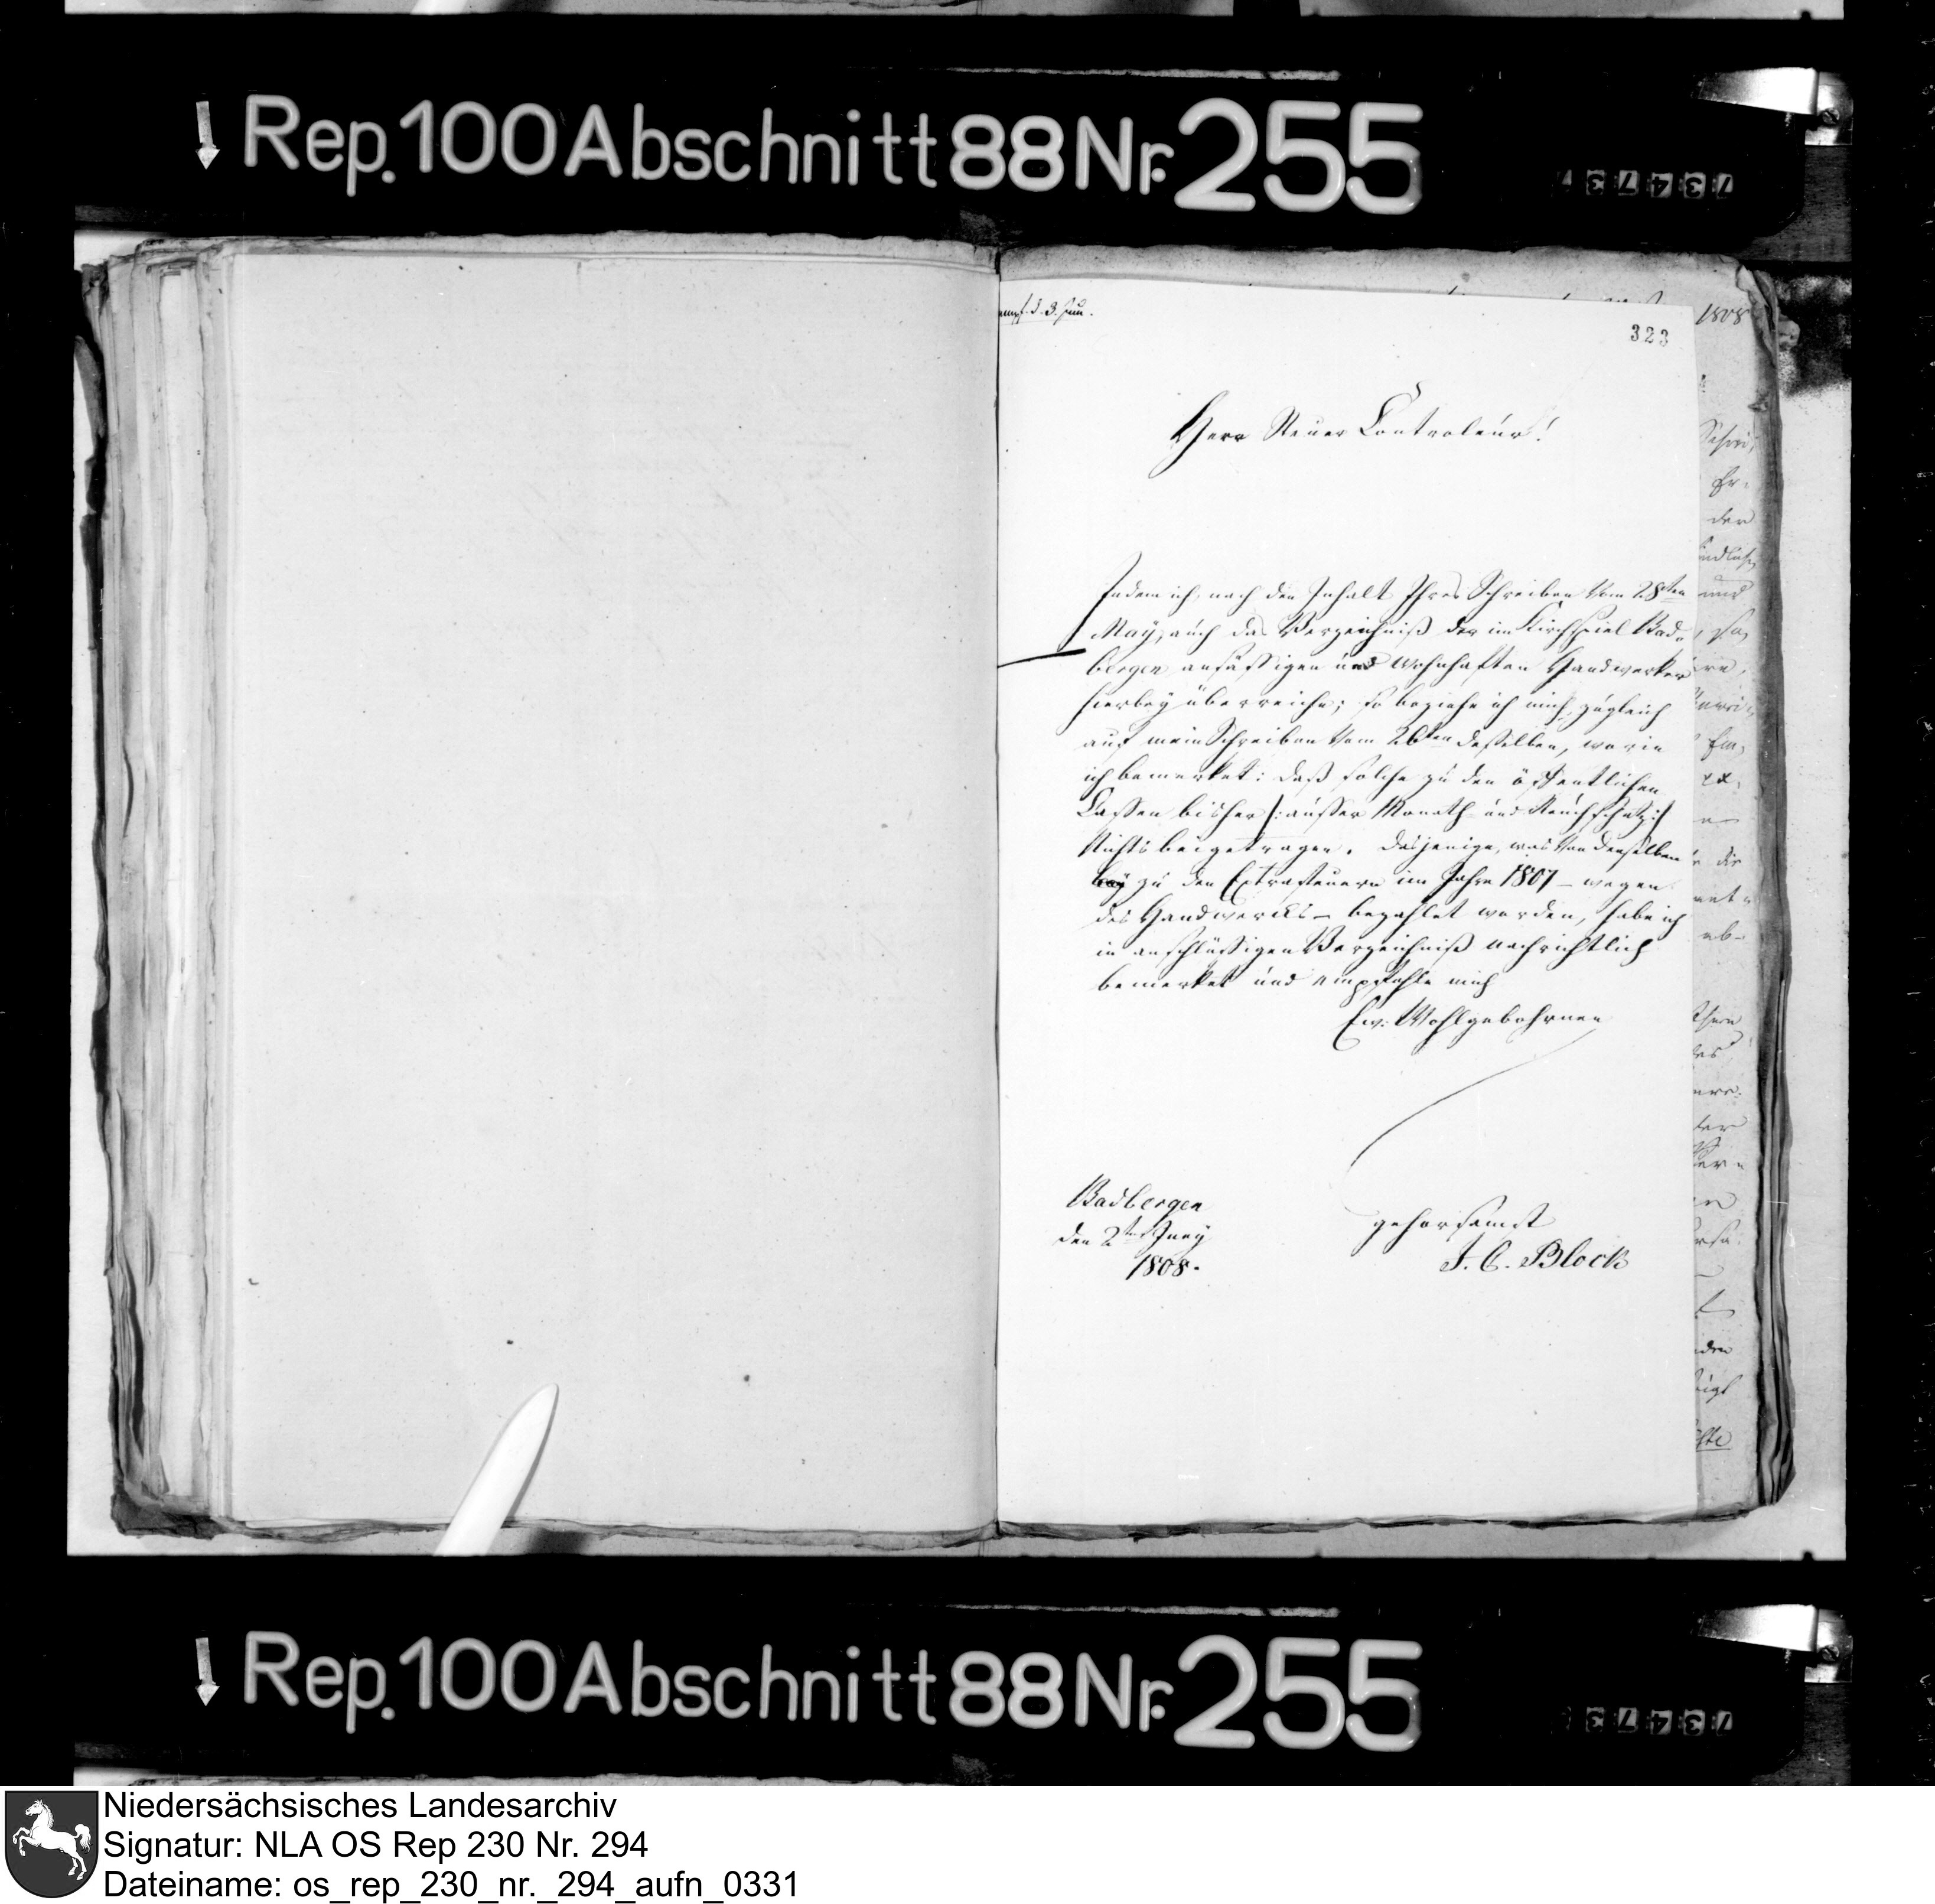 Rep. 100 Abschnitt 88 Nr. 255
empf. d. 3. Jun.
1808
323
Herr Steuer Controleur!
Indem ich, nach den Inhalt Ihres Schreiben vom 28ten
May, auch das Verzeichniß der im Kirchspiel Bad-
bergen ansäßigen und wohnhaften Handwerker
hierbey überreiche; so beziehe ich mich zugleich
auf mein Schreiben vom 26ten deßelben, worin
ich bemerket: daß solche zu den öffentlichen
Cassen bisher /: ausser Monath und Rauchschatz :/
Nichts beigetragen. Dasjenige, was von denselben
zu den Extrasteuern im Jahre 1807 – wegen
des Handwercks – bezahlet worden, habe ich
in anschlüßigen Verzeichniß nachrichtlich
bemerket und empfehle mich
Ew: Wohlgebohrnen
Badbergen
den 2ten Juny
1808.
gehorsamst
J. C. Block
Rep. 100 Abschnitt 88 Nr. 255
Niedersächsisches Landesarchiv
Signatur: NLA OS Rep 230 Nr. 294
Dateiname: os_rep_230_nr._294_aufn_0331